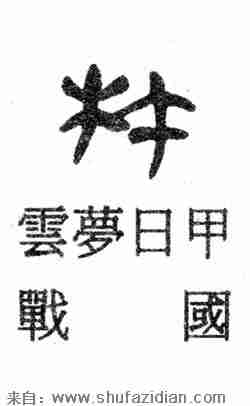 雲夢日甲
戰國
来自：www.shufazidian.com